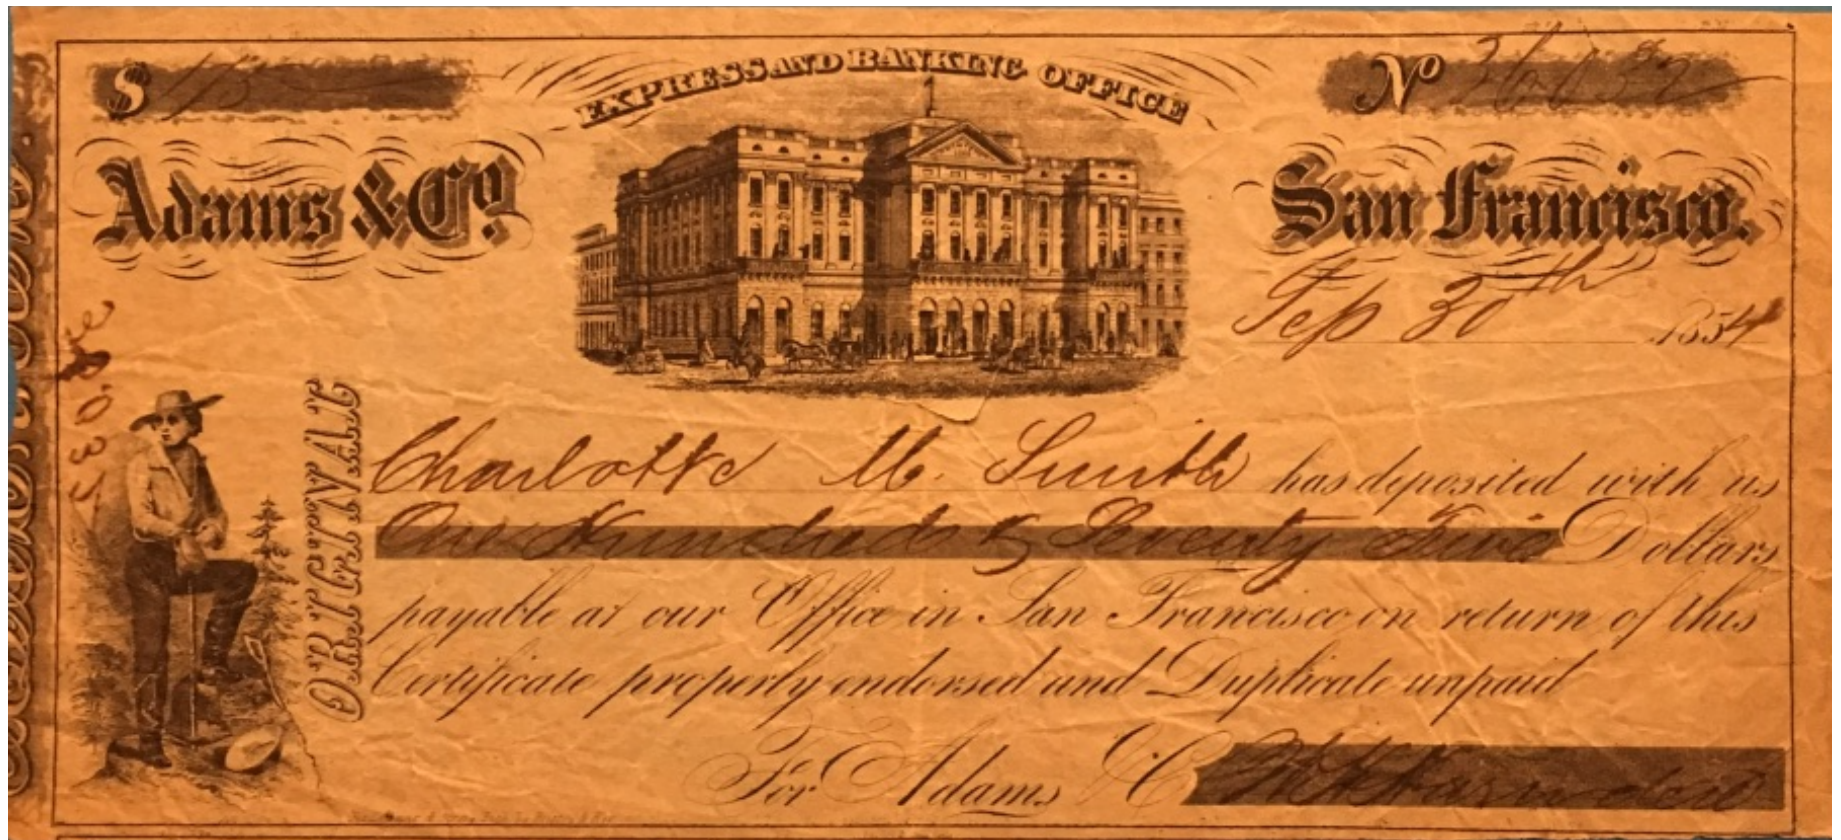 $ 175
EXPRESS AND BANKING OFFICE
No
Adams & Co.
San Francisco.
Sep 30th 1854
ORIGINAL
Charlotte M. Smith has deposited with us
One Hundred & Seventy Five Dollars
payable at our Office in San Francisco on return of this
Certificate properly endorsed and Duplicate unpaid
For Adams & C